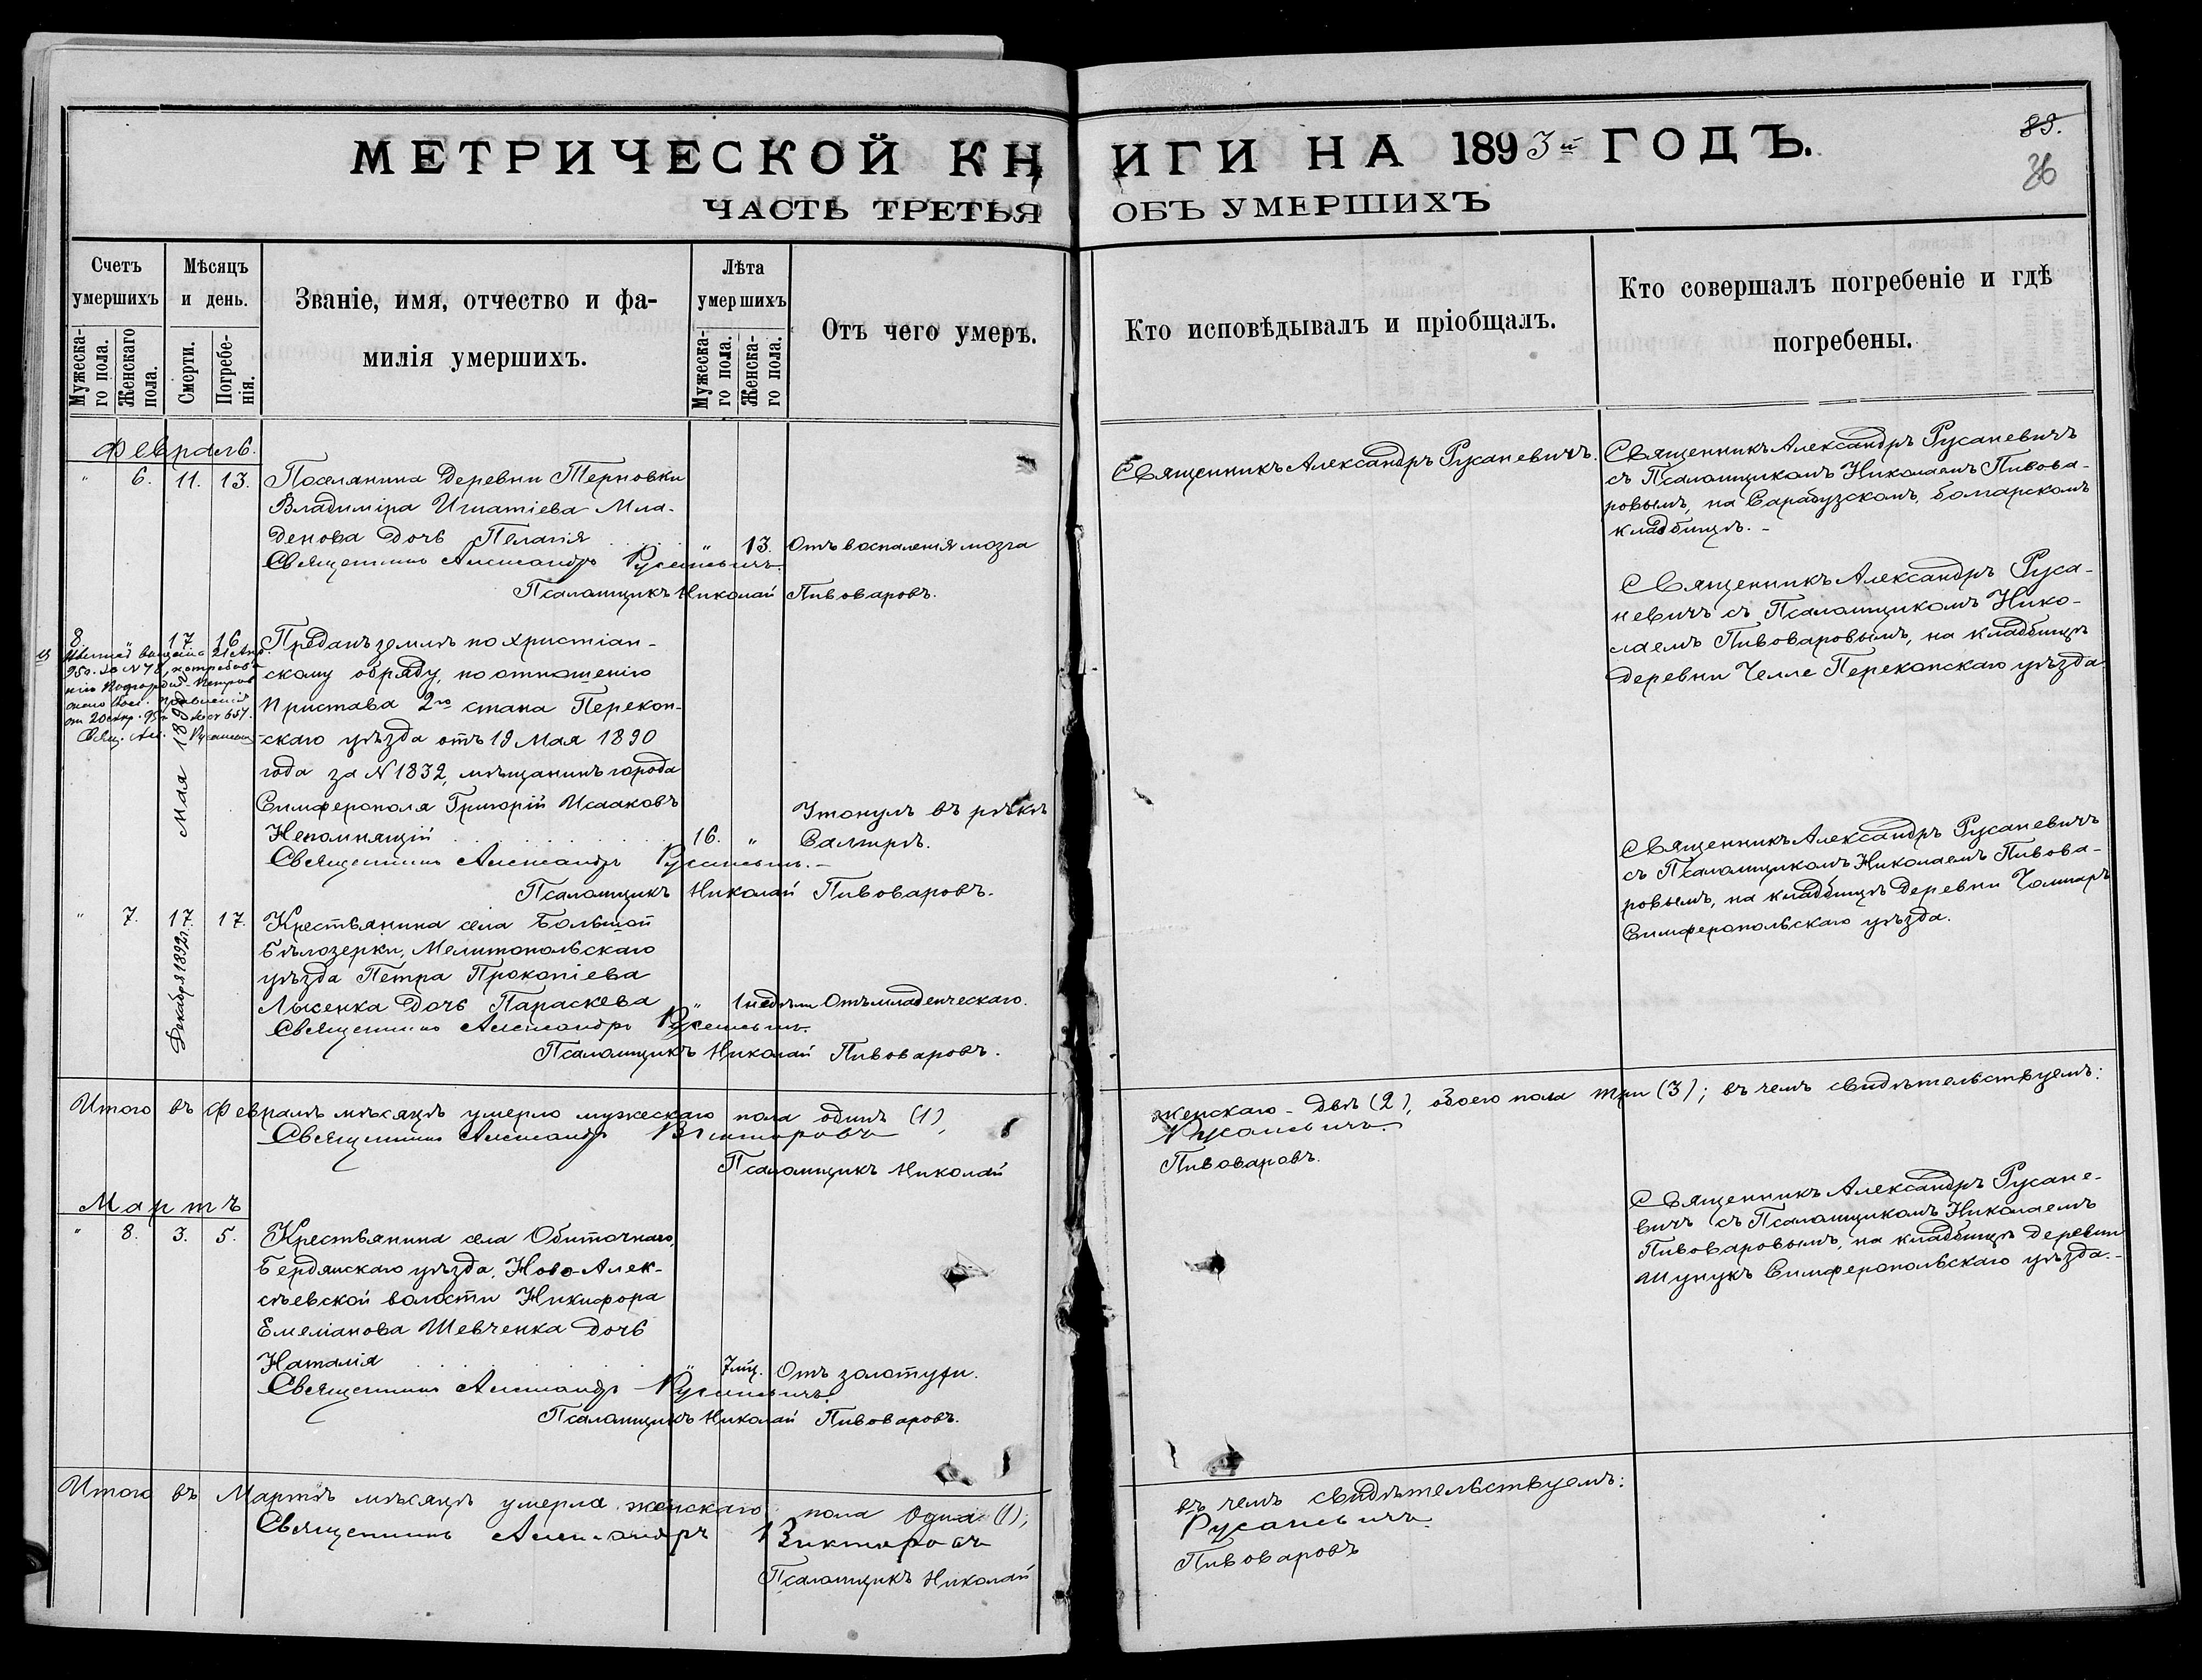 МЕТРИЧЕСКОЙ КНИГИ НА 1893й ГОДЪ.
89.
36
ЧАСТЬ ТРЕТЬЯ ОБЪ УМЕРШИХЪ
Счетъ умершихъ
Мужескаго пола.
Женскаго пола.
Мѣсяцъ и день.
Смерти.
Погребенія.
Званіе, имя, отчество и фа-
милія умершихъ.
Лѣта умершихъ
Мужескаго пола.
Женскаго пола.
Отъ чего умеръ.
Кто исповѣдывалъ и пріобщалъ.
Кто совершалъ погребеніе и гдѣ
погребены.
Февраль.
" 6. 11. 13. Поселянина деревни Терновки
Владиміра Игнатіева Мла-
денова дочь Пелагія " 13. Отъ воспаленія мозга
Священникъ Александръ Русаневичъ.
Псаломщикъ Николай Пивоваровъ.
Священникъ Александръ Русаневичъ.
Священникъ Александръ Русаневичъ
съ Псаломщикомъ Николаемъ Пивова-
ровымъ, на Сарабузскомъ, болгарскомъ
кладбищѣ.
8. " 17 16 Преданъ землѣ по христіан-
скому обряду, по отношенію
Пристава 2го стана Перекоп-
скаго уѣзда отъ 19 Мая 1890
года за N 1832, мѣщанинъ города
Симферополя Григорій Исааковъ
Непомнящій 16. " Утонулъ въ рѣкѣ
Салгирѣ.
Мая 1890
Священникъ Александръ Русаневичъ.
Псаломщикъ Николай Пивоваровъ.
Священникъ Александръ Руса-
невичъ съ Псаломщикомъ Нико-
лаемъ Пивоваровымъ, на кладбищѣ
деревни Челле Перекопскаго уѣзда
" 7. 17 17. Крестьянина села Большой
Бѣлозерки, Мелитопольскаго
уѣзда Петра Прокопіева
Лысенка дочь Параскева " 1 недѣли Отъ младенческаго.
Декабря 1892 г.
Священникъ Александръ Русаневичъ.
Псаломщикъ Николай Пивоваровъ.
Священникъ Александръ Русаневичъ
съ Псаломщикомъ Николаемъ Пивова-
ровымъ, на кладбищѣ деревни
Симферопольскаго уѣзда.
Итого въ Февралѣ мѣсяцѣ умерло мужескаго пола одинъ (1), женскаго - двѣ (2), обоего пола три (3); въ чемъ свидѣтельствуемъ:
Священникъ Александръ Викторовъ Русаневичъ.
Псаломщикъ Николай Пивоваровъ.
Мартъ
" 8. 3. 5. Крестьянина села Обиточнаго,
Бердянскаго уѣзда, Ново-Алек-
сѣевской волости Никифора
Емеліанова Шевченка дочь
Наталія " 7 мц. Отъ золотухи.
Священникъ Александръ Русаневичъ
Псаломщикъ Николай Пивоваровъ.
Священникъ Александръ Русане-
вичъ съ Псаломщикомъ Николаемъ
Пивоваровымъ, на кладбищѣ деревни
Шунукъ Симферопольскаго уѣзда.
Итого въ Мартѣ мѣсяцѣ умерла женскаго пола одна (1); въ чемъ свидѣтельствуемъ:
Священникъ Александръ Викторовъ Русаневичъ.
Псаломщикъ Николай Пивоваровъ